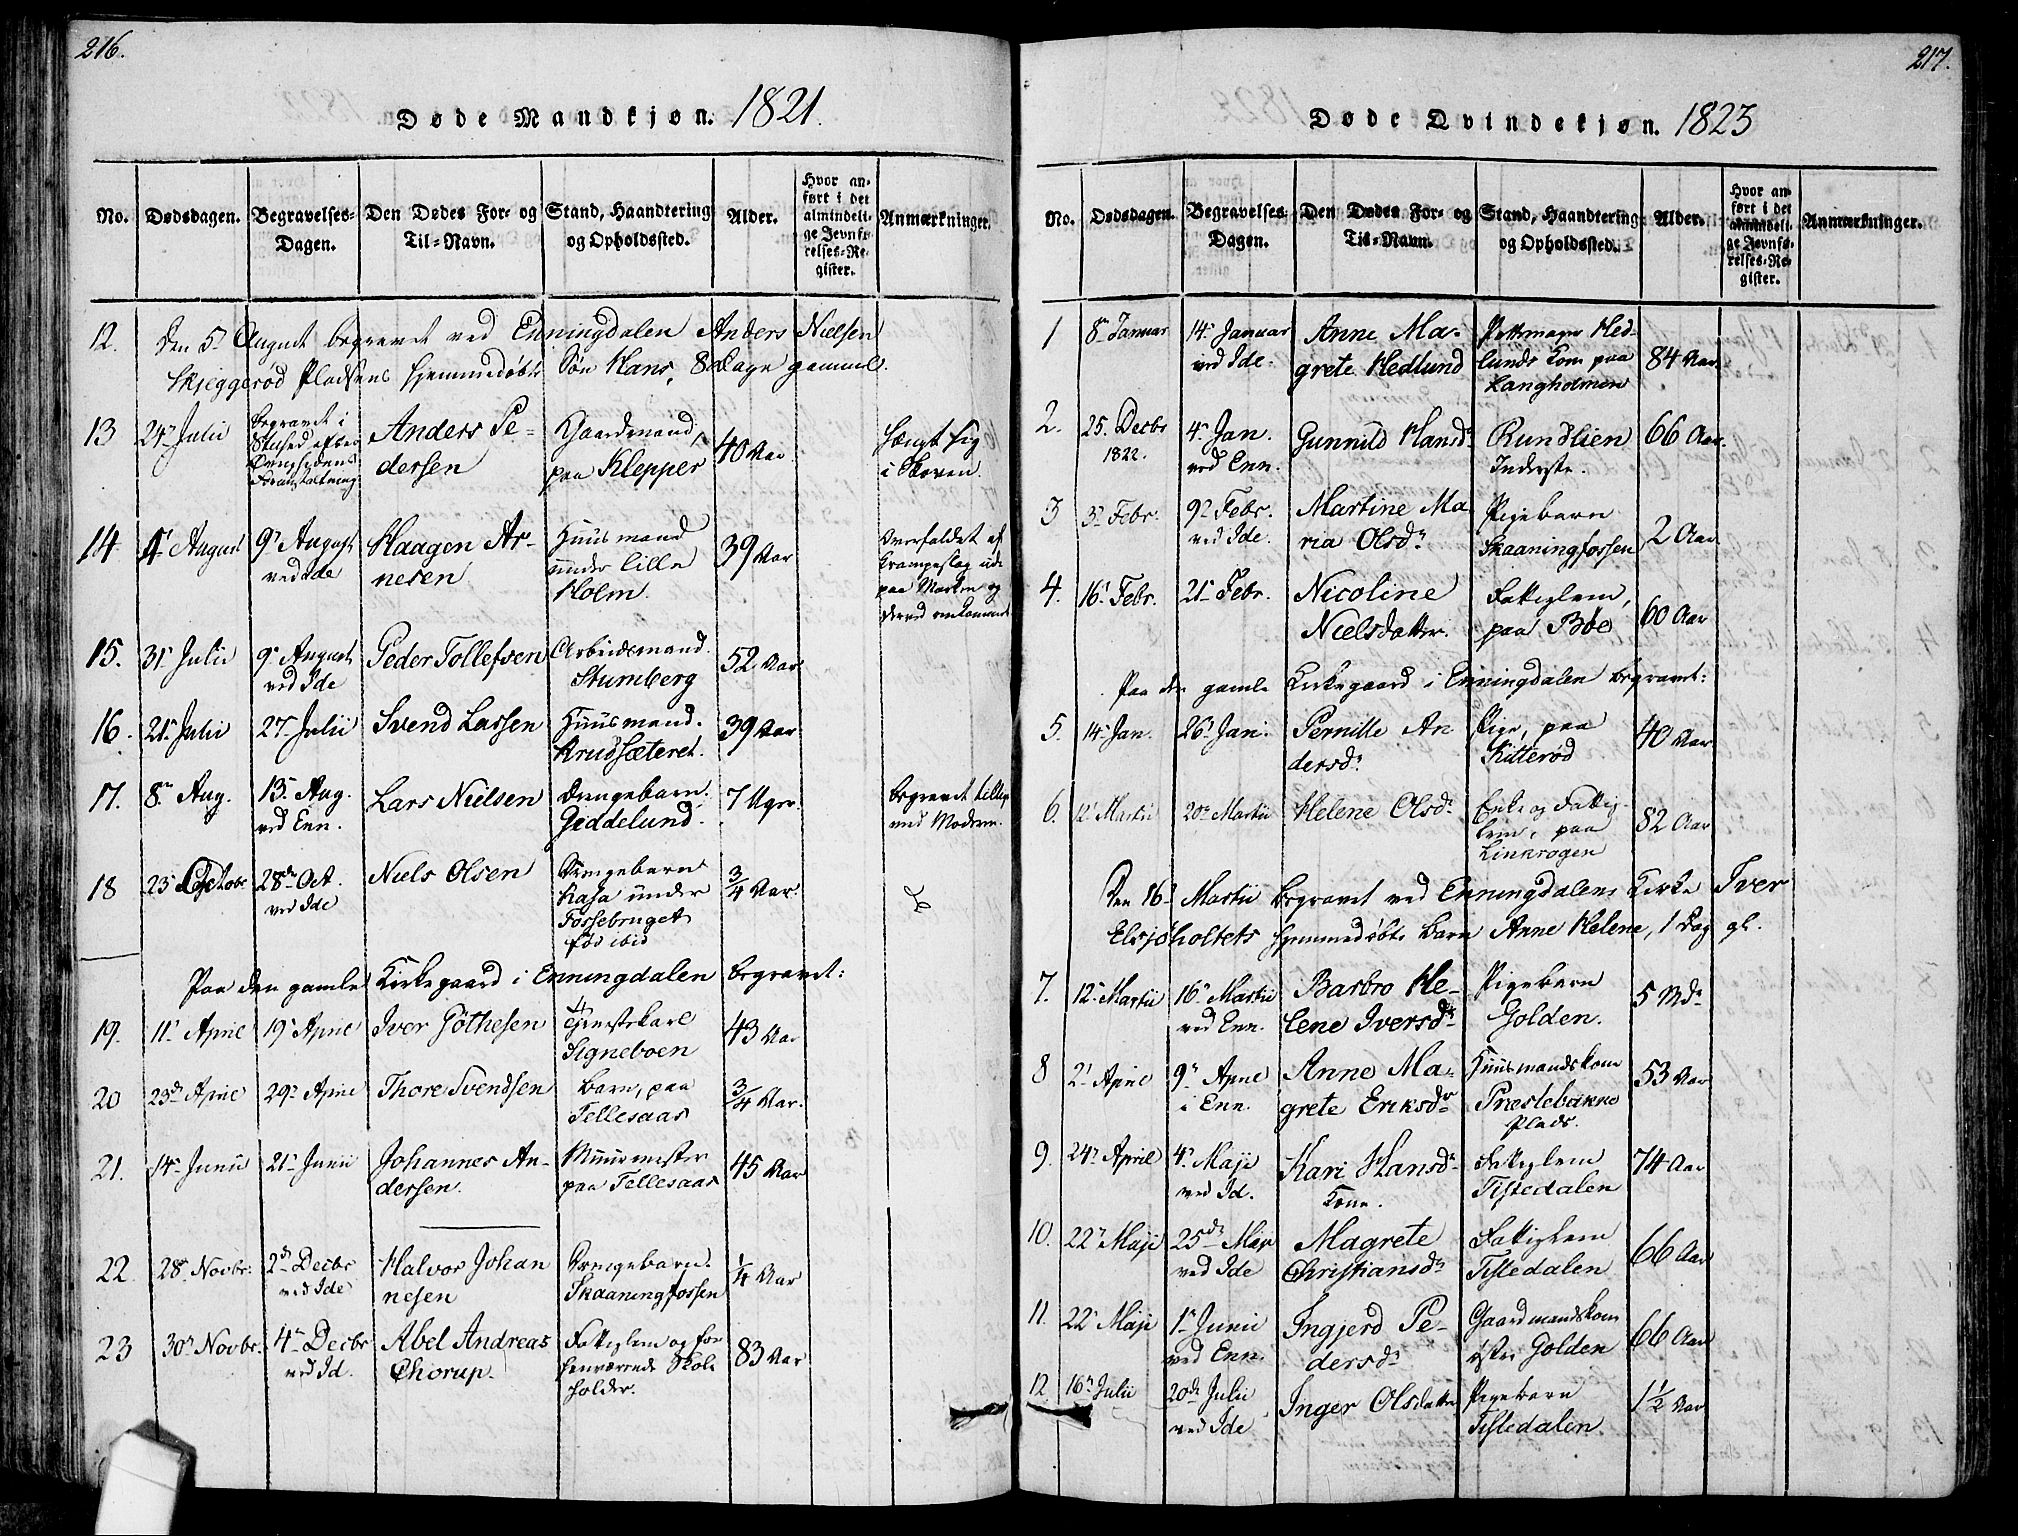 216.
Døde Mandkjøn. 1821.
No.
Dødsdagen.
Begravelses-
Dagen.
Den Dødes For- og
Til-Navn.
Stand, Haandtering
og Opholdssted.
Alder.
Hvor an-
ført i det
almindeli-
ge Jevnfø-
relses-Re-
gister.
Anmærkninger.
12. Den 5. August begravet ved Enningdalen Anders Nielsen
Skjeggerød Pladsens hjemmedøbte Søn Hans, 8 Dage gammel.
13 24. Julii
Begravet i
Stilhed efter
Øvrighedens
Foranstaltning
Anders Pe-
dersen
Gaardmand,
paa Klepper
40 Aar
hængt sig
i Skoven.
14. 4. August
9. August
ved Ide
Haagen Ar-
nesen
Huusmand
under lille
Holm.
39 Aar
Overfaldet af
Krampeslag ude
paa Marken og
derved omkommet
15. 31. Julii
9. August
ved Ide
Peder Tollefsen
Arbeidsmand.
Stumberg
52 Aar
16. 21. Julii
27. Julii
Svend Lassen
Huusmand.
Krudsæteret.
39 Aar
17. 8. Aug.
13. Aug.
ved Enn.
Lars Nielsen
Drengebarn.
Geddelund.
7 Uger.
begravet tillige
med Moderen.
18 23. Octobr
28de Oct.
ved Ide
Niels Olsen
Drengebarn
Kasa under
Fossebruget
fød ibid
3/4 Aar.
Paa den gamle Kirkegaard i Enningdalen begravet:
19. 11. April
19. April
Iver Gøthesen
Tjenestekarl
Signeboen
43 Aar
20 23de April
29. April
Thore Svendsen
Barn, paa
Tellesaas
3/4 Aar.
21. 14. Junii
21. Junii
Johannes An-
dersen.
Muurmester
paa Tellesaas
45 Aar
22. 28. Novbr.
2de Decbr
ved Ide
Halvor Johan
nesen
Drengebarn.
Skaaningfossen
1/4 Aar
23 30. Novbr.
4. Decbr
ved Id.
Abel Andreas
Chorup.
Fattiglem og for
henværende Skole
holder.
83 Aar
217.
Døde Qvindekjøn. 1823
No.
Dødsdagen.
Begravelses-
Dagen.
Den Dødes For- og
Til-Navn.
Stand, Haandtering
og Opholdssted.
Alder.
Hvor an-
ført i det
almindeli-
ge Jevnfø-
relses-Re-
gister.
Anmærkninger.
1 8. Januar
14. Januar
ved Ide.
Anne Ma-
grete Hedlund
Pottemager Hed-
lunds Kone paa
Langholmen
84 Aar.
2. 25. Decbr
1822.
4. Jan.
ved Enn.
Gunnild Hansd.
Rundlien
Inderste.
66 Aar.
3 3. Febr.
9. Febr.
ved Ide.
Martine Ma
ria Olsd.
Pigebarn
Skaaningfossen
2 Aar
4. 16. Febr.
21. Febr.
Nicoline
Nielsdatter.
Fattiglem,
paa Bøe
60 Aar
Paa den gamle Kirkegaard i Enningdalen begravet:
5. 14. Jan.
26. Jan.
Pernille An
dersd.
Pige, paa
Kitterød
40 Aar
6. 12. Martii
20. Martii
Helene Olsd.
Enke og Fattig-
lem, paa
Linkrogen
82 Aar
Den 16. Martii begravet ved Enningdalens Kirke Iver
Elvsjøholtets hjemmedøbte Barn Anne Helene, 1 Dag gl.
7. 12. Martii
16. Martii
ved Enn.
Barbro He-
lene Iversd.
Pigebarn
Golden.
5 Md.
8 2. April
9. April
i Enn.
Anne Ma-
grete Eriksd.
Huusmandskone
Præstebakke
Plads.
53 Aar
9. 24. April
4. Maji
ved Id.
Kari Hansd.
Kone.
Fattiglem
Tistedalen
74 Aar
10. 22. Maji
25de Mai
ved Ide
Magrete
Christiansd.
Fattiglem
Tistedalen
66 Aar
11. 22. Maji
1. Junii
ved Enn.
Ingjerd Pe-
dersd.
Gaardmandskone
østre Golden
66 Aar
12 16. Julii
20de Julii
ved Ide
Inger Olsdatter
Pigebarn
Tistedalen.
1 1/2 Aar